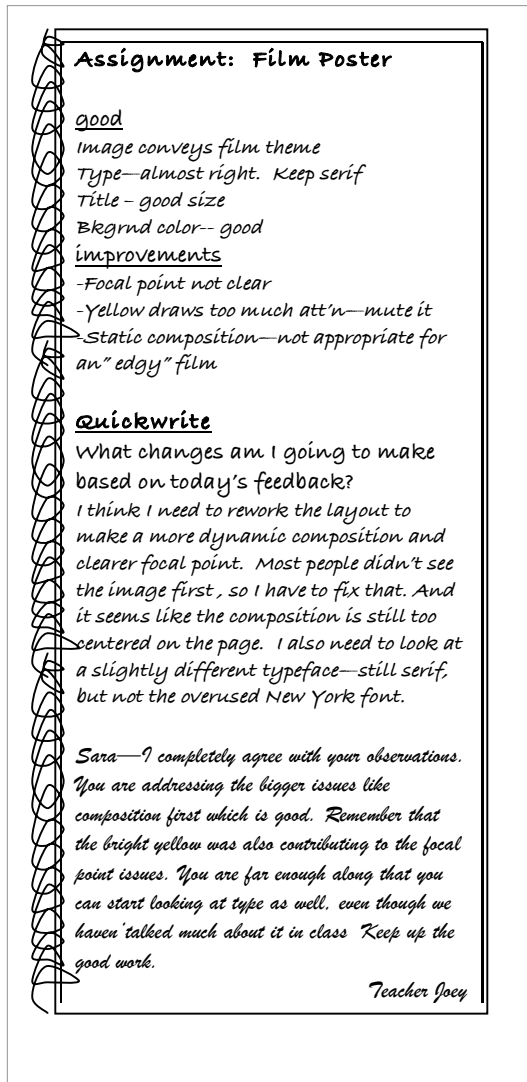 Assignment: Film Poster
good
Image conveys film theme
Type—almost right. Keep serif
Title – good size
Bkgrnd color-- good
improvements
-Focal point not clear
-Yellow draws too much att'n—mute it
-Static composition—not appropriate for
an" edgy" film
Quickwrite
What changes am I going to make
based on today's feedback?
I think I need to rework the layout to
make a more dynamic composition and
clearer focal point. Most people didn't see
the image first , so I have to fix that. And
it seems like the composition is still too
centered on the page. I also need to look at
a slightly different typeface—still serif,
but not the overused New York font.
Sara—I completely agree with your observations.
You are addressing the bigger issues like
composition first which is good. Remember that
the bright yellow was also contributing to the focal
point issues. You are far enough along that you
can start looking at type as well, even though we
haven'talked much about it in class Keep up the
good work.
Teacher Joey